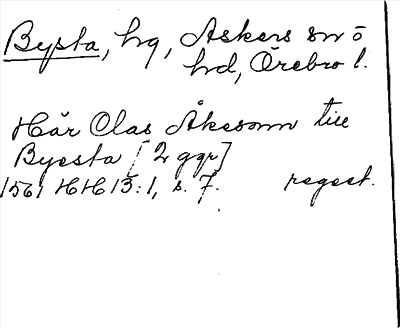 Bysta, hg, Askers sn o
hd, Örebro l.
Här Clas Åkesonn till
Byesta [2 ggr]
1561 HH 13:1, s. 7. regest.